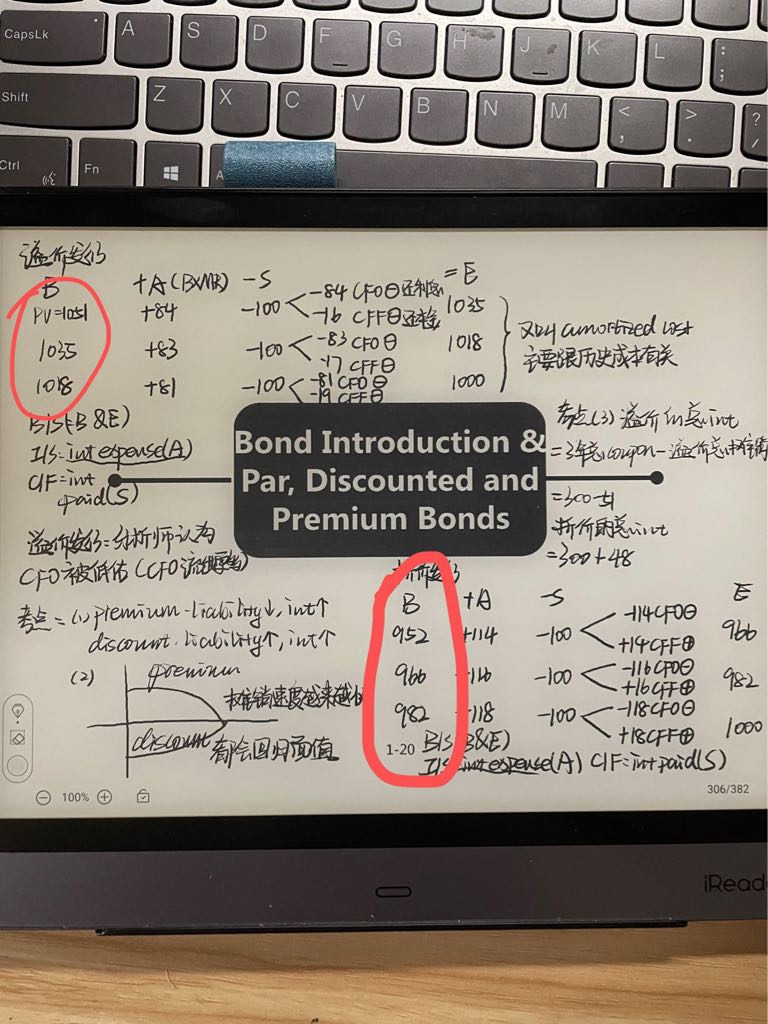 CapsLk A S D F G H J K L : ;
Shift Z X C V B N M < , > . ? /
Ctrl Fn A
溢价发行
B +A(B×MR) -S = E
PV=1051 +84 -100 -84 CFO⊖还利息 -16 CFF⊖还本金 1035
1035 +83 -100 -83 CFO⊖ -17 CFF⊖ 1018
1018 +81 -100 -81 CFO⊖ -19 CFF⊖ 1000
amortized cost
主要跟历史成本有关
B/S(B&E)
I/S=int expense(A)
C/F=int paid(S)
Bond Introduction &
Par, Discounted and
Premium Bonds
考点(3)溢价的总int
=3年总coupon-溢价总
=300-51
折价的总int
=300+48
溢价发行=分析师认为
CFO被低估(CFO
考点=(1)premium-liability↓,int↑
discount-liability↑,int↑
(2) premium
摊销速度越来越
discount 都会回归面值
折价发行
B +A -S E
952 +114 -100 -114CFO⊖ +14CFF⊕ 966
966 +116 -100 -116CFO⊖ +16CFF⊕ 982
982 +118 -100 -118CFO⊖ +18CFF⊕ 1000
1-20 B/S(B&E)
I/S=int expense(A) C/F=int paid(S)
100%
306/382
iReade